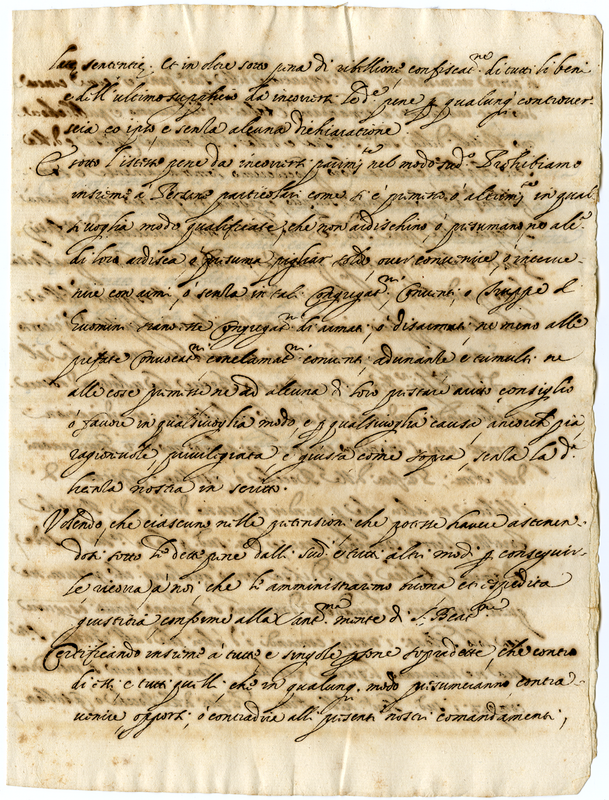 late sententie. Et in oltre sotto pena di ribellione confiscat.ne di tutti li beni
e dell'ultimo supplitio da incorrersi le d.e pene p qualunq controver
seia eo ipso e senza alcuna dichiaratione
E sotto l'istesse pene da incorrersi parim.te nel modo sud.o Prohibiamo
insieme à Persone particolari come si è permesso, ò altrim.te in qual
sivoglia modo qualificate, che non ardischino, ò presumano ne alc.
di loro ardisca ò presuma pigliar soldo, over convenire, ò interve
nire con armi, ò senza in tali Congregat.ni Conventi o Truppe d
huomini siano esse congregat.ni di armati, ò disarmati ne meno alle
prefate Convocat.ni conclamat.ni conventi adunanze e tumulti ne
alle cose premisse ne ad alcuna di loro prestare aiuto consiglio
ò favore in qualsivoglia modo, e p qualsivoglia causa ancorche pia
ragionevole, privilegiata e giusta come sopra, senza la d.
licenza nostra in scritto.
Volendo, che ciascuno nelle pretensioni che potesse havere astenen
dosi sotto le dette pene dalli sud. e tutti altri modi p conseguir
le ricorra à noi che li amministraremo buona et espedita
giustitia conforme alla Sant.ma mente di S. Beat.ne
Certificando insieme à tutte e singole psone sopradette, che contro
di essi e tutti quelli che in qualunq. modo presumeranno contra
venire opporsi, ò contradire alli presenti nostri comandamenti,